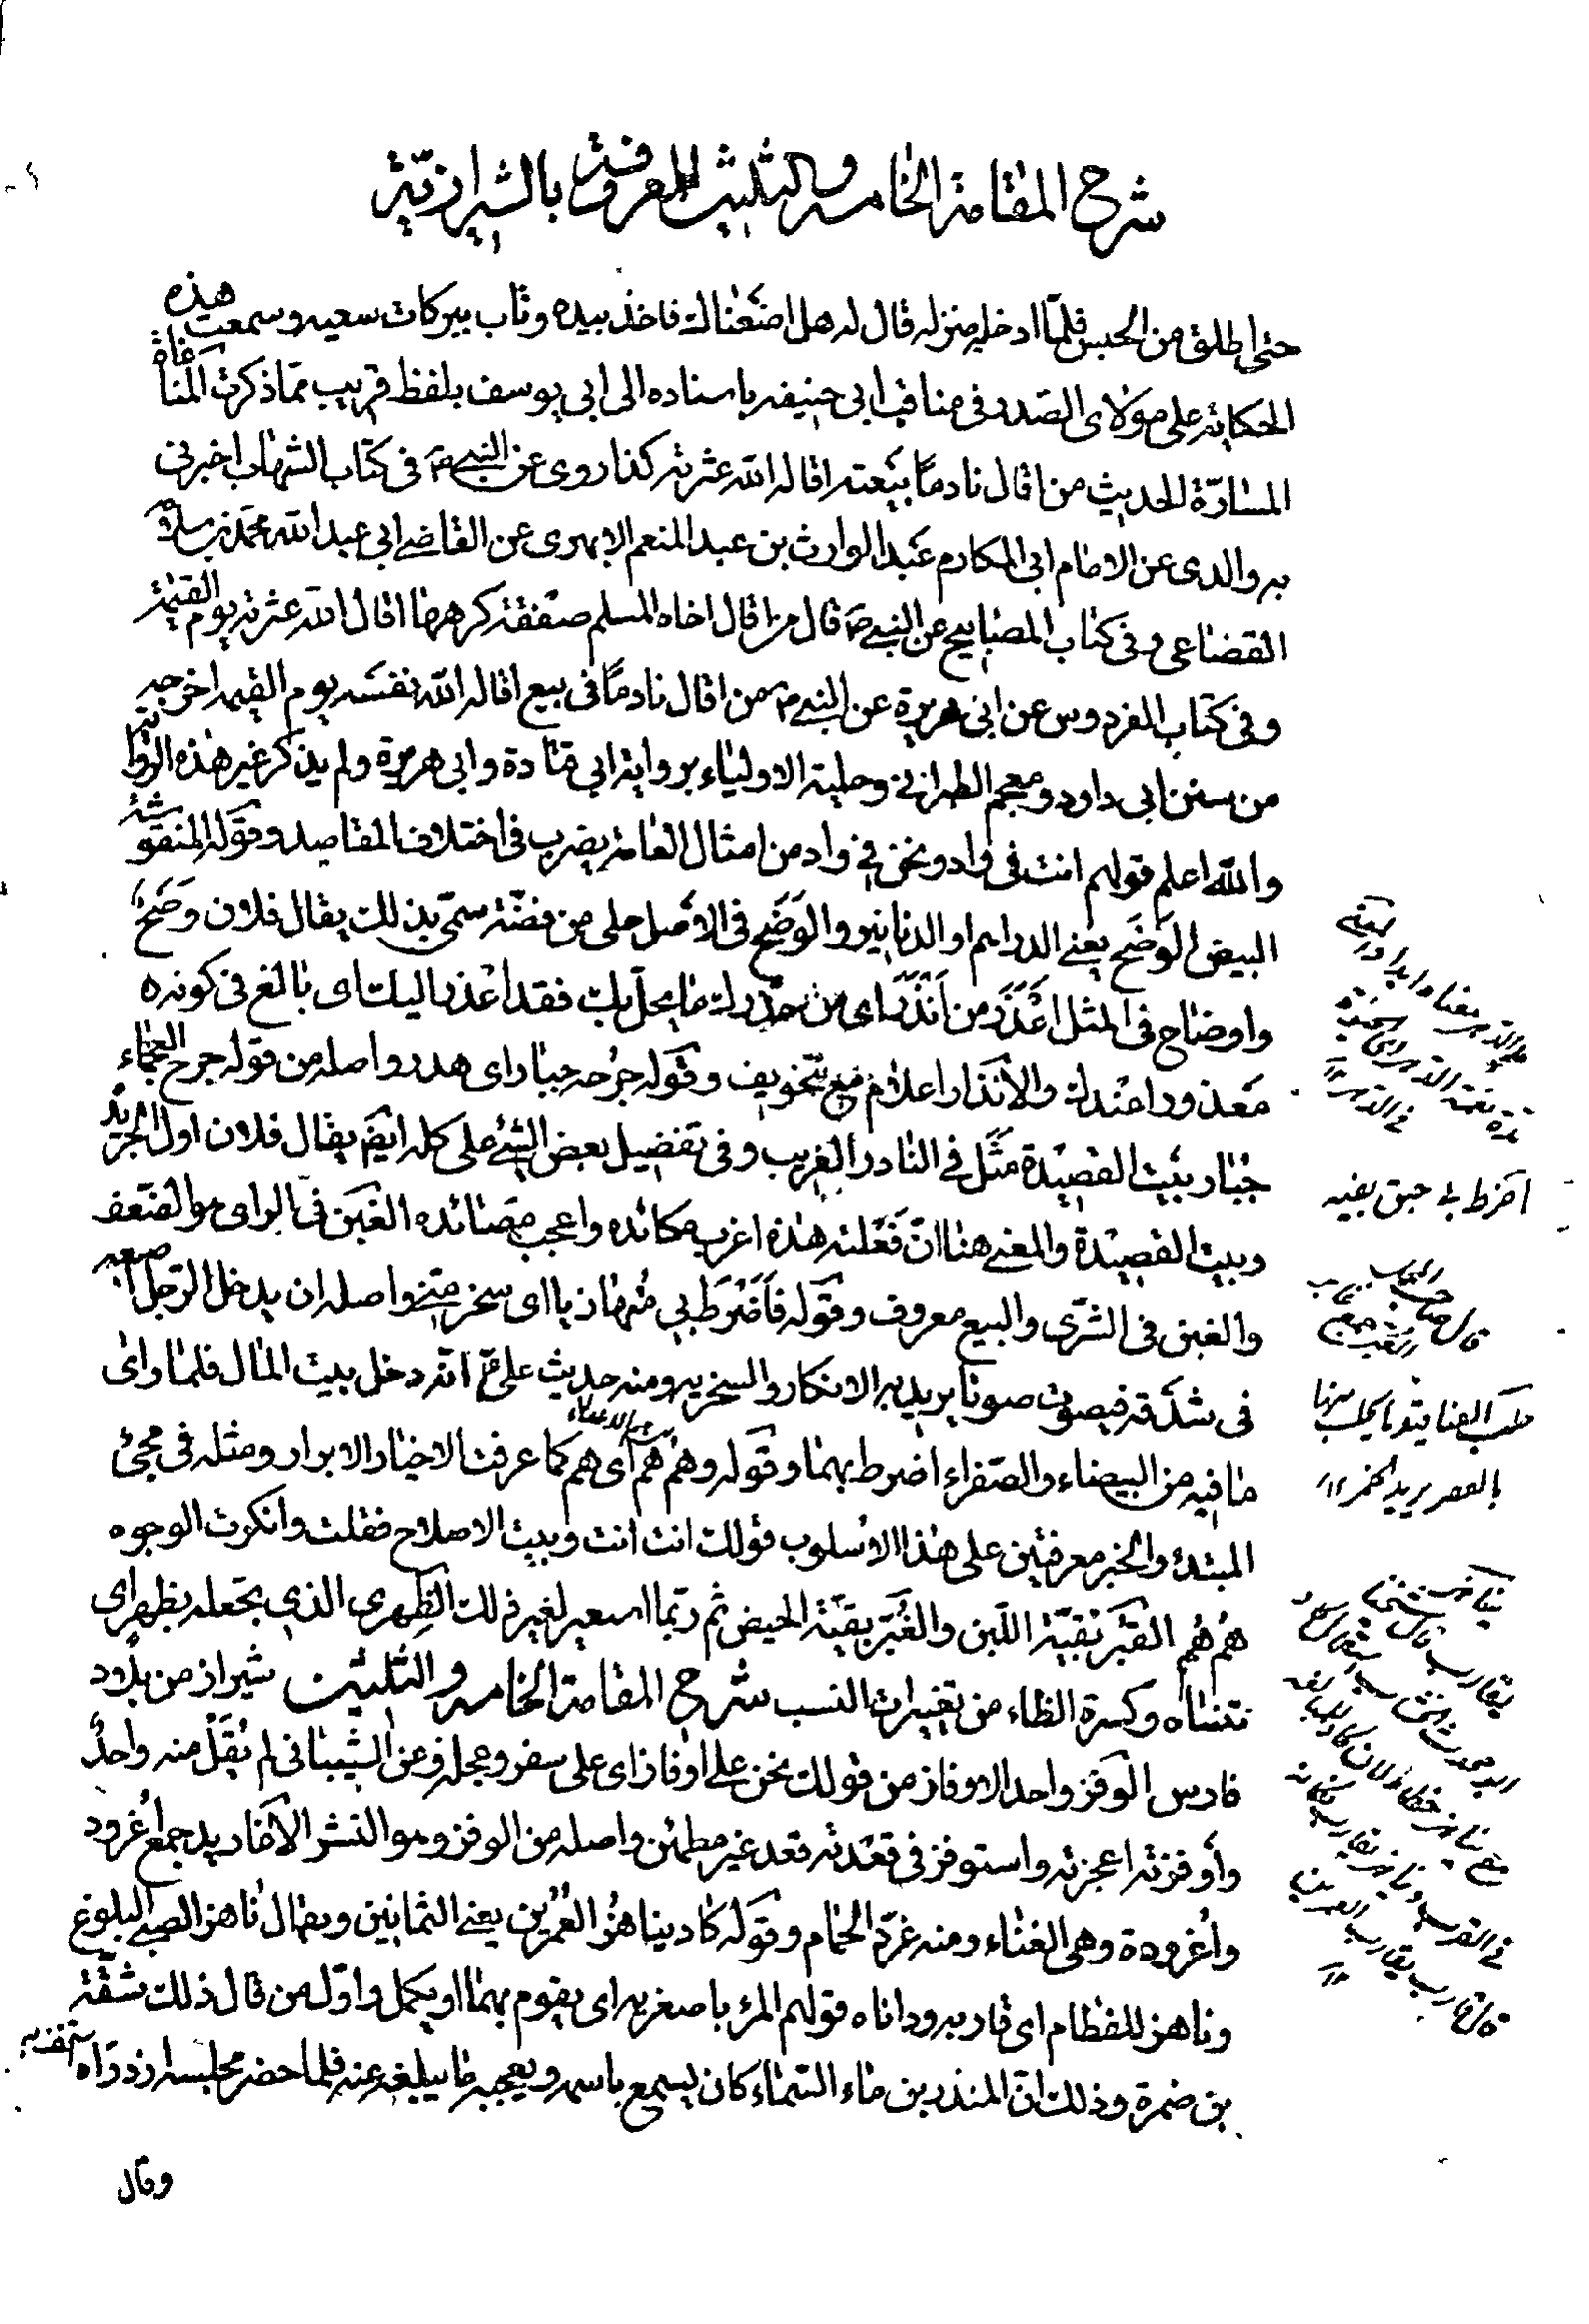 شرح المقامة الخامسه والثلثين المعروفة بالشيرازيّة
حتى اطلق من الحبس فلمّا ادخله منزله قال له هل اضَعْناك فاخذ بيده وتاب ببركات سعيه وسمعت هذه
الحكاية على مولاى الصدر فى مناقب ابى حنيفه باسناده الى ابى يوسف بلفظ قريب ممّا ذكرت المنافاة
المسارّة الحديث من اقال نادمًا بيعته اقاله الله عثرته كذا روى عن النبى ص فى كتاب الشهاب اخبرنى
به والدى عن الامام ابى المكارم عبد الوارث بن عبد المنعم الابهرى عن القاضى ابى عبد الله محمد بن سلامة
القضاعى وفى كتاب المصابيح عن النبى ص قال من اقال اخاه المسلم صفقة كرهها اقال الله عثرته يوم القيمة
وفى كتاب الفردوس عن ابى هريرة عن النبى ص من اقال نادمًا فى بيع اقاله الله نفسه يوم القيمه اخرجه
من سنن ابى داود ومعجم الطبرانى وحلية الاولياء برواية ابى قتادة وابى هريرة ولم يذكر غير هذه الرواية
والله اعلم قولهم انت فى واد ونحن فى واد من امثال العامة يضرب فى اختلاف المقاصد وقوله المنقوشة
البيض الوَضَح يعنى الدراهم او الدنانير والوَضَح فى الاصل حلى من فضّة سمّى بذلك يقال فلان وَضَح
واوضاح فى المثل اَعْذَرَ من اَنْذَرَ اى من حذّرك ما يحل بك فقد اعذر اليك اى بالغ فى كونه
معذورا عندك والانذار اعلام مع تخويف وقوله جرحه جبار اى هدر واصله من قوله جرح العجماء
جُبار بيت القصيدة مثل فى النادر الغريب وفى تفضيل بعض الشئ على كله ايضا يقال فلان اول الجريدة
وبيت القصيدة والمعنى هنا انّ فَعْلته هذه اغرب مكائده واعجب مصائده الغبن فى الراى هو الضعف
والغبن فى الشرى والبيع معروف وقوله فاَضْرَط بى متهازيا اى سخر منى واصله ان يدخل الرجل اصبعه
فى شدقه فيصوت صوتا يريد به الانكار والسخريه ومنه حديث على انّه دخل بيت المال فلما راى
ما فيه من البيضاء والصفراء اضرط بهما وقوله وهم هم اى هم كما عرفت الاخيار الابرار ومثله فى مجئ
المبتدء والخبر معرفتين على هذا الاسلوب قولك انت انت وبيت الاصلاح فقلت وانكرت الوجوه
هُم هُم الغُبَّر بقيّة اللبن والغُبَّر بقيّة الحيض ثم ربّما استعير لغير ذلك الظِهرى الذى تجعله بظهر اى
تتنساه وكسرة الظاء من تغييرات النسب شرح المقامة الخامسه والثلثين شيراز من بلاد
فارس الوَفز واحد الاوفاز من قولك نحن على اوفاز اى على سفر وعجله وعن الشيبانى لم يُقَل منه واحدٌ
واَوفزته اعجزته واستوفز فى قعدته قعد غير مطمئن واصله من الوفز وهو النشز الاغاريد جمع اُغرود
واُغرودة وهى الغناء ومنه غرّد الحمام وقوله كاد يناهز العُمرين يعنى الثمانين ويقال ناهز الصبى البلوغ
وناهز للفطام اى قاربه وداناه قولهم المرء باصغريه اى يقوم بهما او يكمل واوّل من قال ذلك شقّة
بن ضمرة وذلك انّ المنذر بن ماء السماء كان يسمع باسمه ويعجبه ما يبلغه عنه فلما حضر مجلسه ازدراه
وقال
اضرط بى حبق بفيه